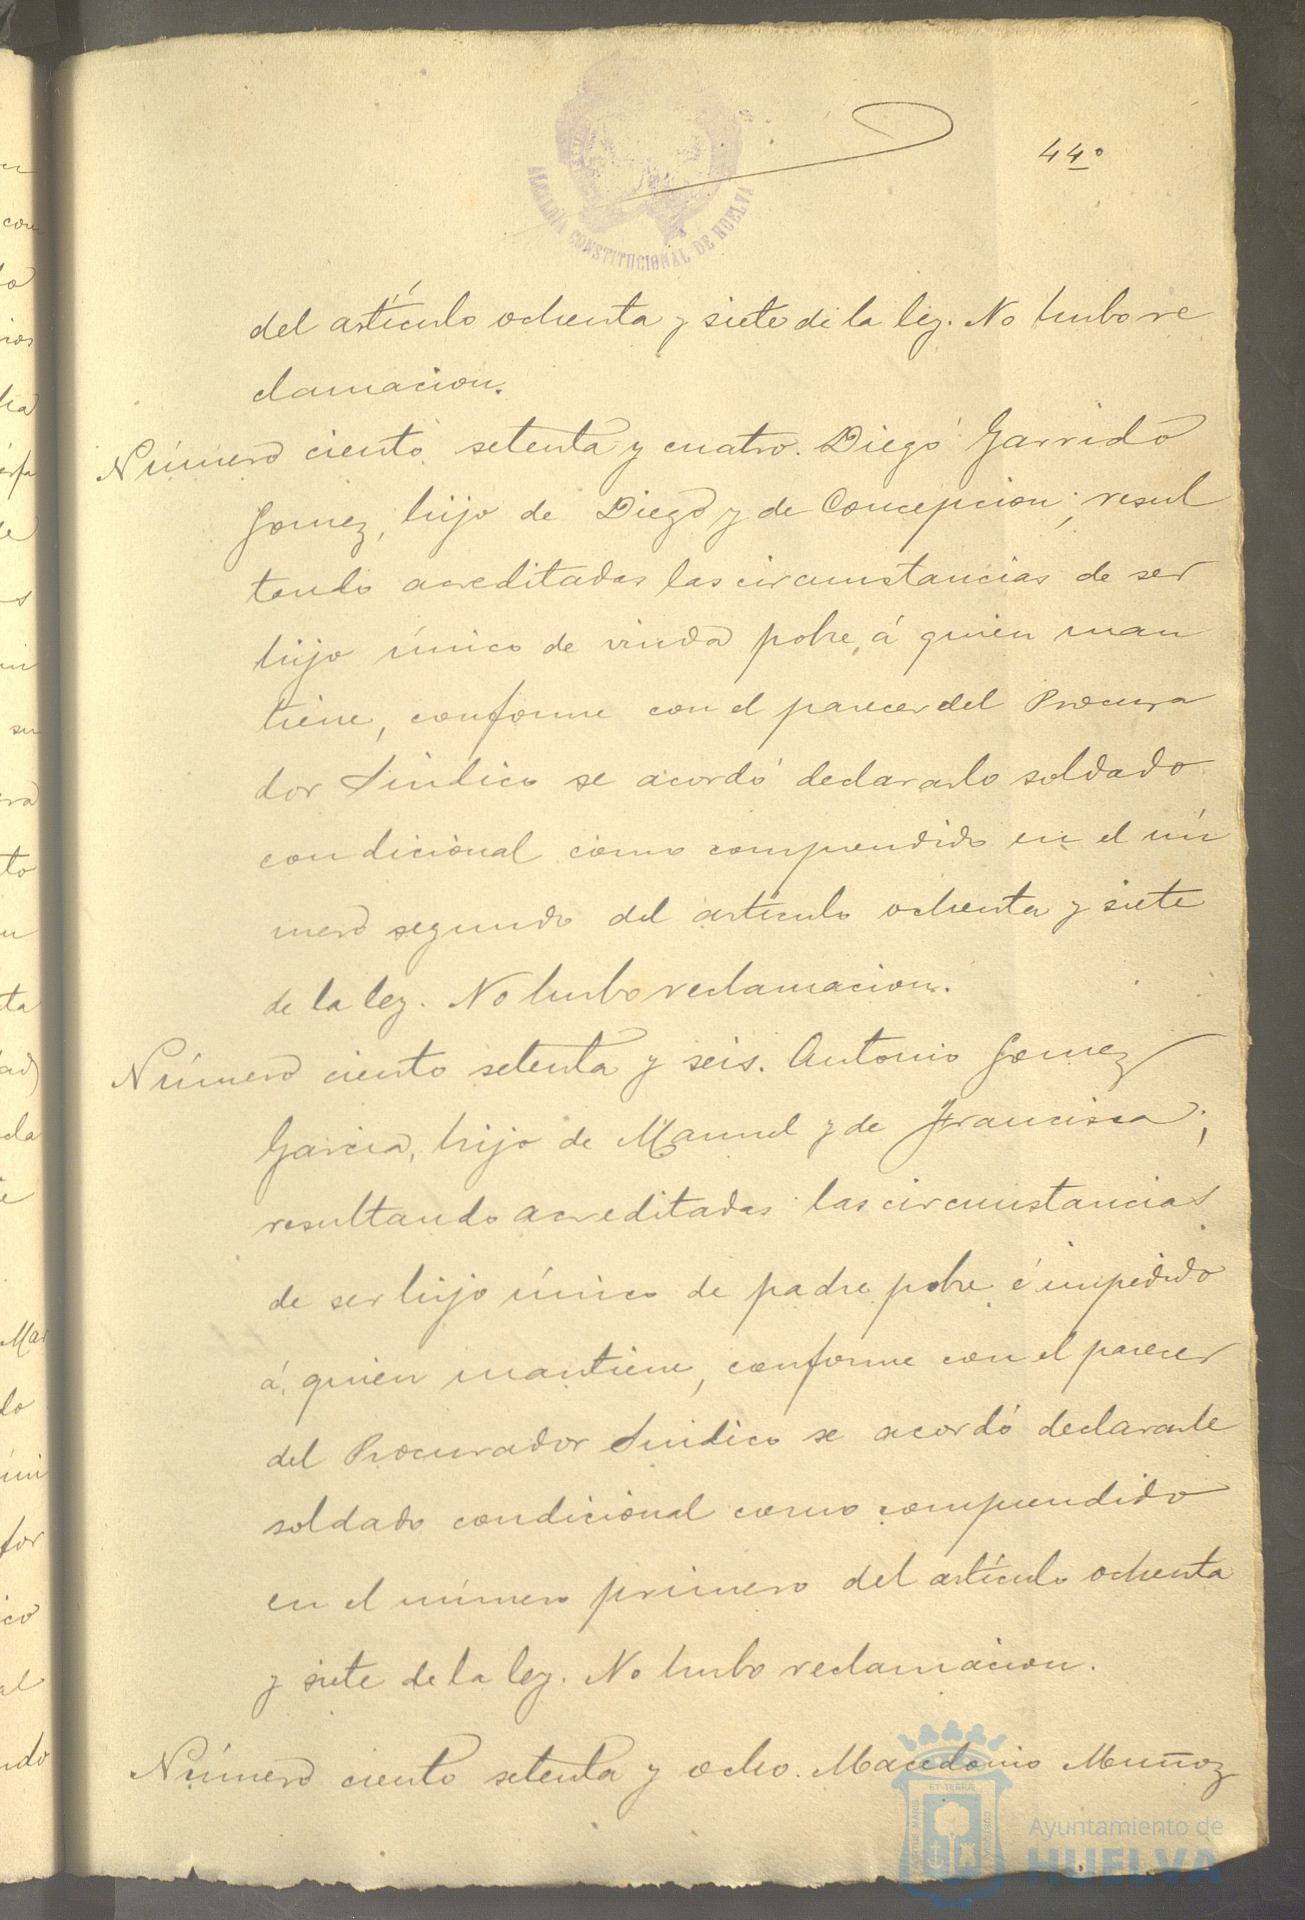 44º
ALCALDÍA CONSTITUCIONAL DE HUELVA
del artículo ochenta y siete de la ley. No hubo re
clamacion.
Número ciento setenta y cuatro. Diego Garrido
Gomez, hijo de Diego y de Concepcion; resul
tando acreditadas las circunstancias de ser
hijo único de viuda pobre, á quien man
tiene, conforme con el parecer del Procura
dor Sindico se acordó declararlo soldado
condicional como comprendido en el nú
mero segundo del artículo ochenta y siete
de la ley. No hubo reclamacion.
Número ciento setenta y seis. Antonio Gomez
Garcia, hijo de Manuel y de Francisca;
resultando acreditadas las circunstancias
de ser hijo único de padre pobre é impedido
á quien mantiene, conforme con el parecer
del Procurador Sindico se acordó declararle
soldado condicional como comprendido
en el número primero del artículo ochenta
y siete de la ley. No hubo reclamacion.
Número ciento setenta y ocho. Macedonio Muñoz
Ayuntamiento de
HUELVA